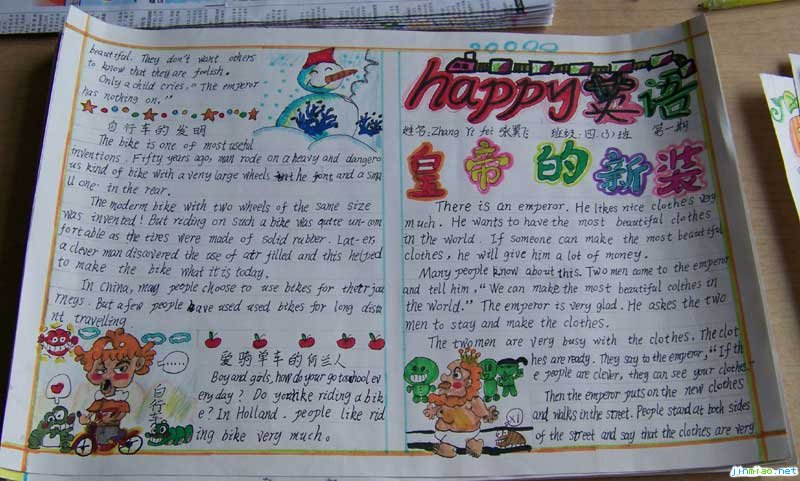 beautiful. They don't want others
to know that they are foolish.
Only a child cries, "The emperor
has nothing on."
自行车的发明
The bike is one of most useful
inventions. Fifty years ago, man rode on a heavy and dangero
us kind of bike with a very large wheels the font and a sma
ll one in the rear.
The moderm bike with two wheels of the same size
was invented! But riding on such a bike was quite un-com
fortable as the tires were made of solid rubber. Lat-er,
a clever man disovered the use of air filled and this helped
to make the bike what it is today.
In China, may people choose to use bikes for their jou
rneys. But a few people have used used bikes for long dista
nt travelling
爱骑单车的荷兰人
Boy and girls, how do your go to school ev
eryday? Do you like riding a bik
e? In Holland. people like rid
ing bike very much.
自行车
happy 英语
姓名:Zhang Yi fei 张翼飞 班级:四.(3)班 第一期
皇帝的新装
There is an emperor. He likes nice clothes very
much. He wants to have the most beautiful clothes
in the world. If someone can make the most beautiful
clothes, he will give him a lot of money.
Many people know about this. Two men come to the emperor
and tell him, "We can make the most beautiful colthes in
the world." The emperor is very glad. He askes the two
men to stay and make the clothes.
The two men are very busy with the clothes. The clot
hes are ready. They say to the emperor, "If th
e people are clever, they can see your clothes."
Then the emperor puts on the new clothes
and walks in the street. People stand at both sides
of the street and say that the clothes are very
jinmiao.net